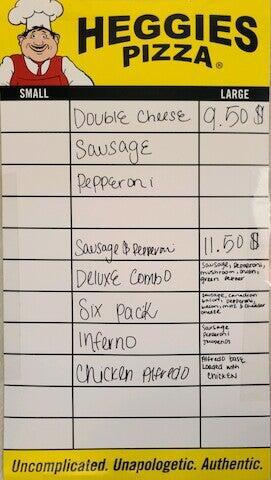 HEGGIES
PIZZA®
SMALL LARGE
Double Cheese 9.50 $
Sausage
Pepperoni
Sausage & Pepperoni 11.50 $
Deluxe Combo
Sausage, Pepperoni,
mushroom, onion,
green pepper
Six Pack
Sausage, canadian
bacon, pepperoni,
bacon, mozz & cheddar
cheese
Inferno
Sausage
Pepperoni
Chicken Alfredo
Alfredo base
Loaded with
Chicken
Uncomplicated. Unapologetic. Authentic.